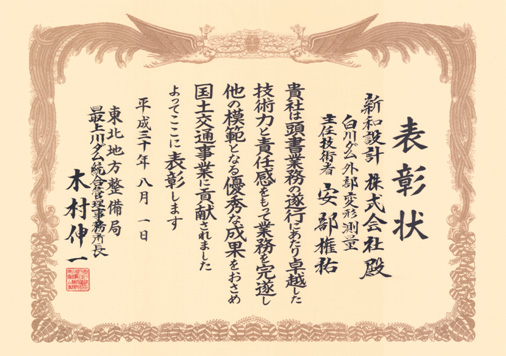 表彰状
新和設計 株式会社 殿
白川ダム外部変形測量
主任技術者 安部権祐
貴社は頭書業務の遂行にあたり卓越した
技術力と責任感をもって業務を完遂し
他の模範となる優秀な成果をおさめ
国土交通事業に貢献されました
よってここに表彰します
平成三十年 八月 一日
東北地方整備局
最上川ダム統合管理事務所長
木村伸一